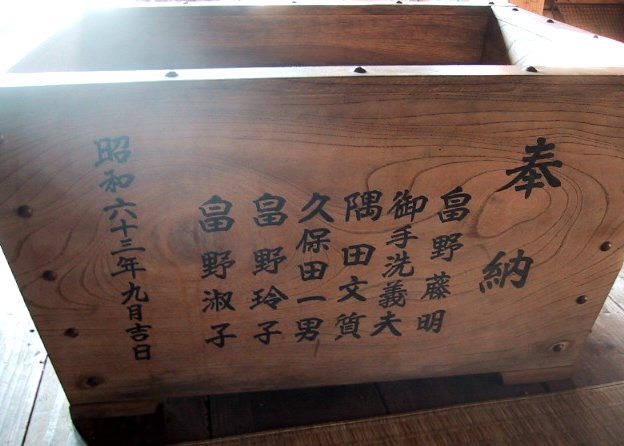 奉納
畠野藤明
御手洗義夫
隅田文質
久保田一男
畠野玲子
畠野淑子
昭和六十三年九月吉日